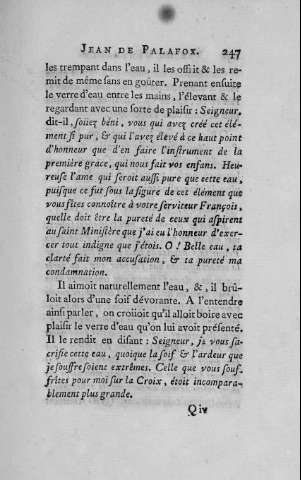 JEAN DE PALAFOX. 247
les trempant dans l'eau, il les offrit & les re-
mit de même sans en goûter. Prenant ensuite
le verre d'eau entre les mains, l'élevant & le
regardant avec une sorte de plaisir : Seigneur,
dit-il, soïez béni, vous qui avez créé cet élé-
ment si pur, & qui l'avez élevé à ce haut point
d'honneur que d'en faire l'instrument de la
première grace, qui nous fait vos enfans. Heu-
reuse l'ame qui seroit aussi pure que cette eau,
puisque ce fut sous la figure de cet élément que
vous fîtes connoître à votre serviteur François,
quelle doit être la pureté de ceux qui aspirent
au saint Ministère que j'ai eu l'honneur d'exer-
cer tout indigne que j'étois. O ! Belle eau, ta
clarté fait mon accusation, & ta pureté ma
condamnation.
Il aimoit naturellement l'eau, &, il brû-
loit alors d'une soif dévorante. A l'entendre
ainsi parler, on croïioit qu'il alloit boire avec
plaisir le verre d'eau qu'on lui avoit présenté.
Il le rendit en disant : Seigneur, je vous sa-
crifie cette eau, quoique la soif & l'ardeur que
je souffre soient extrêmes. Celle que vous souf-
frîtes pour moi sur la Croix, étoit incompara-
blement plus grande.
Q iv